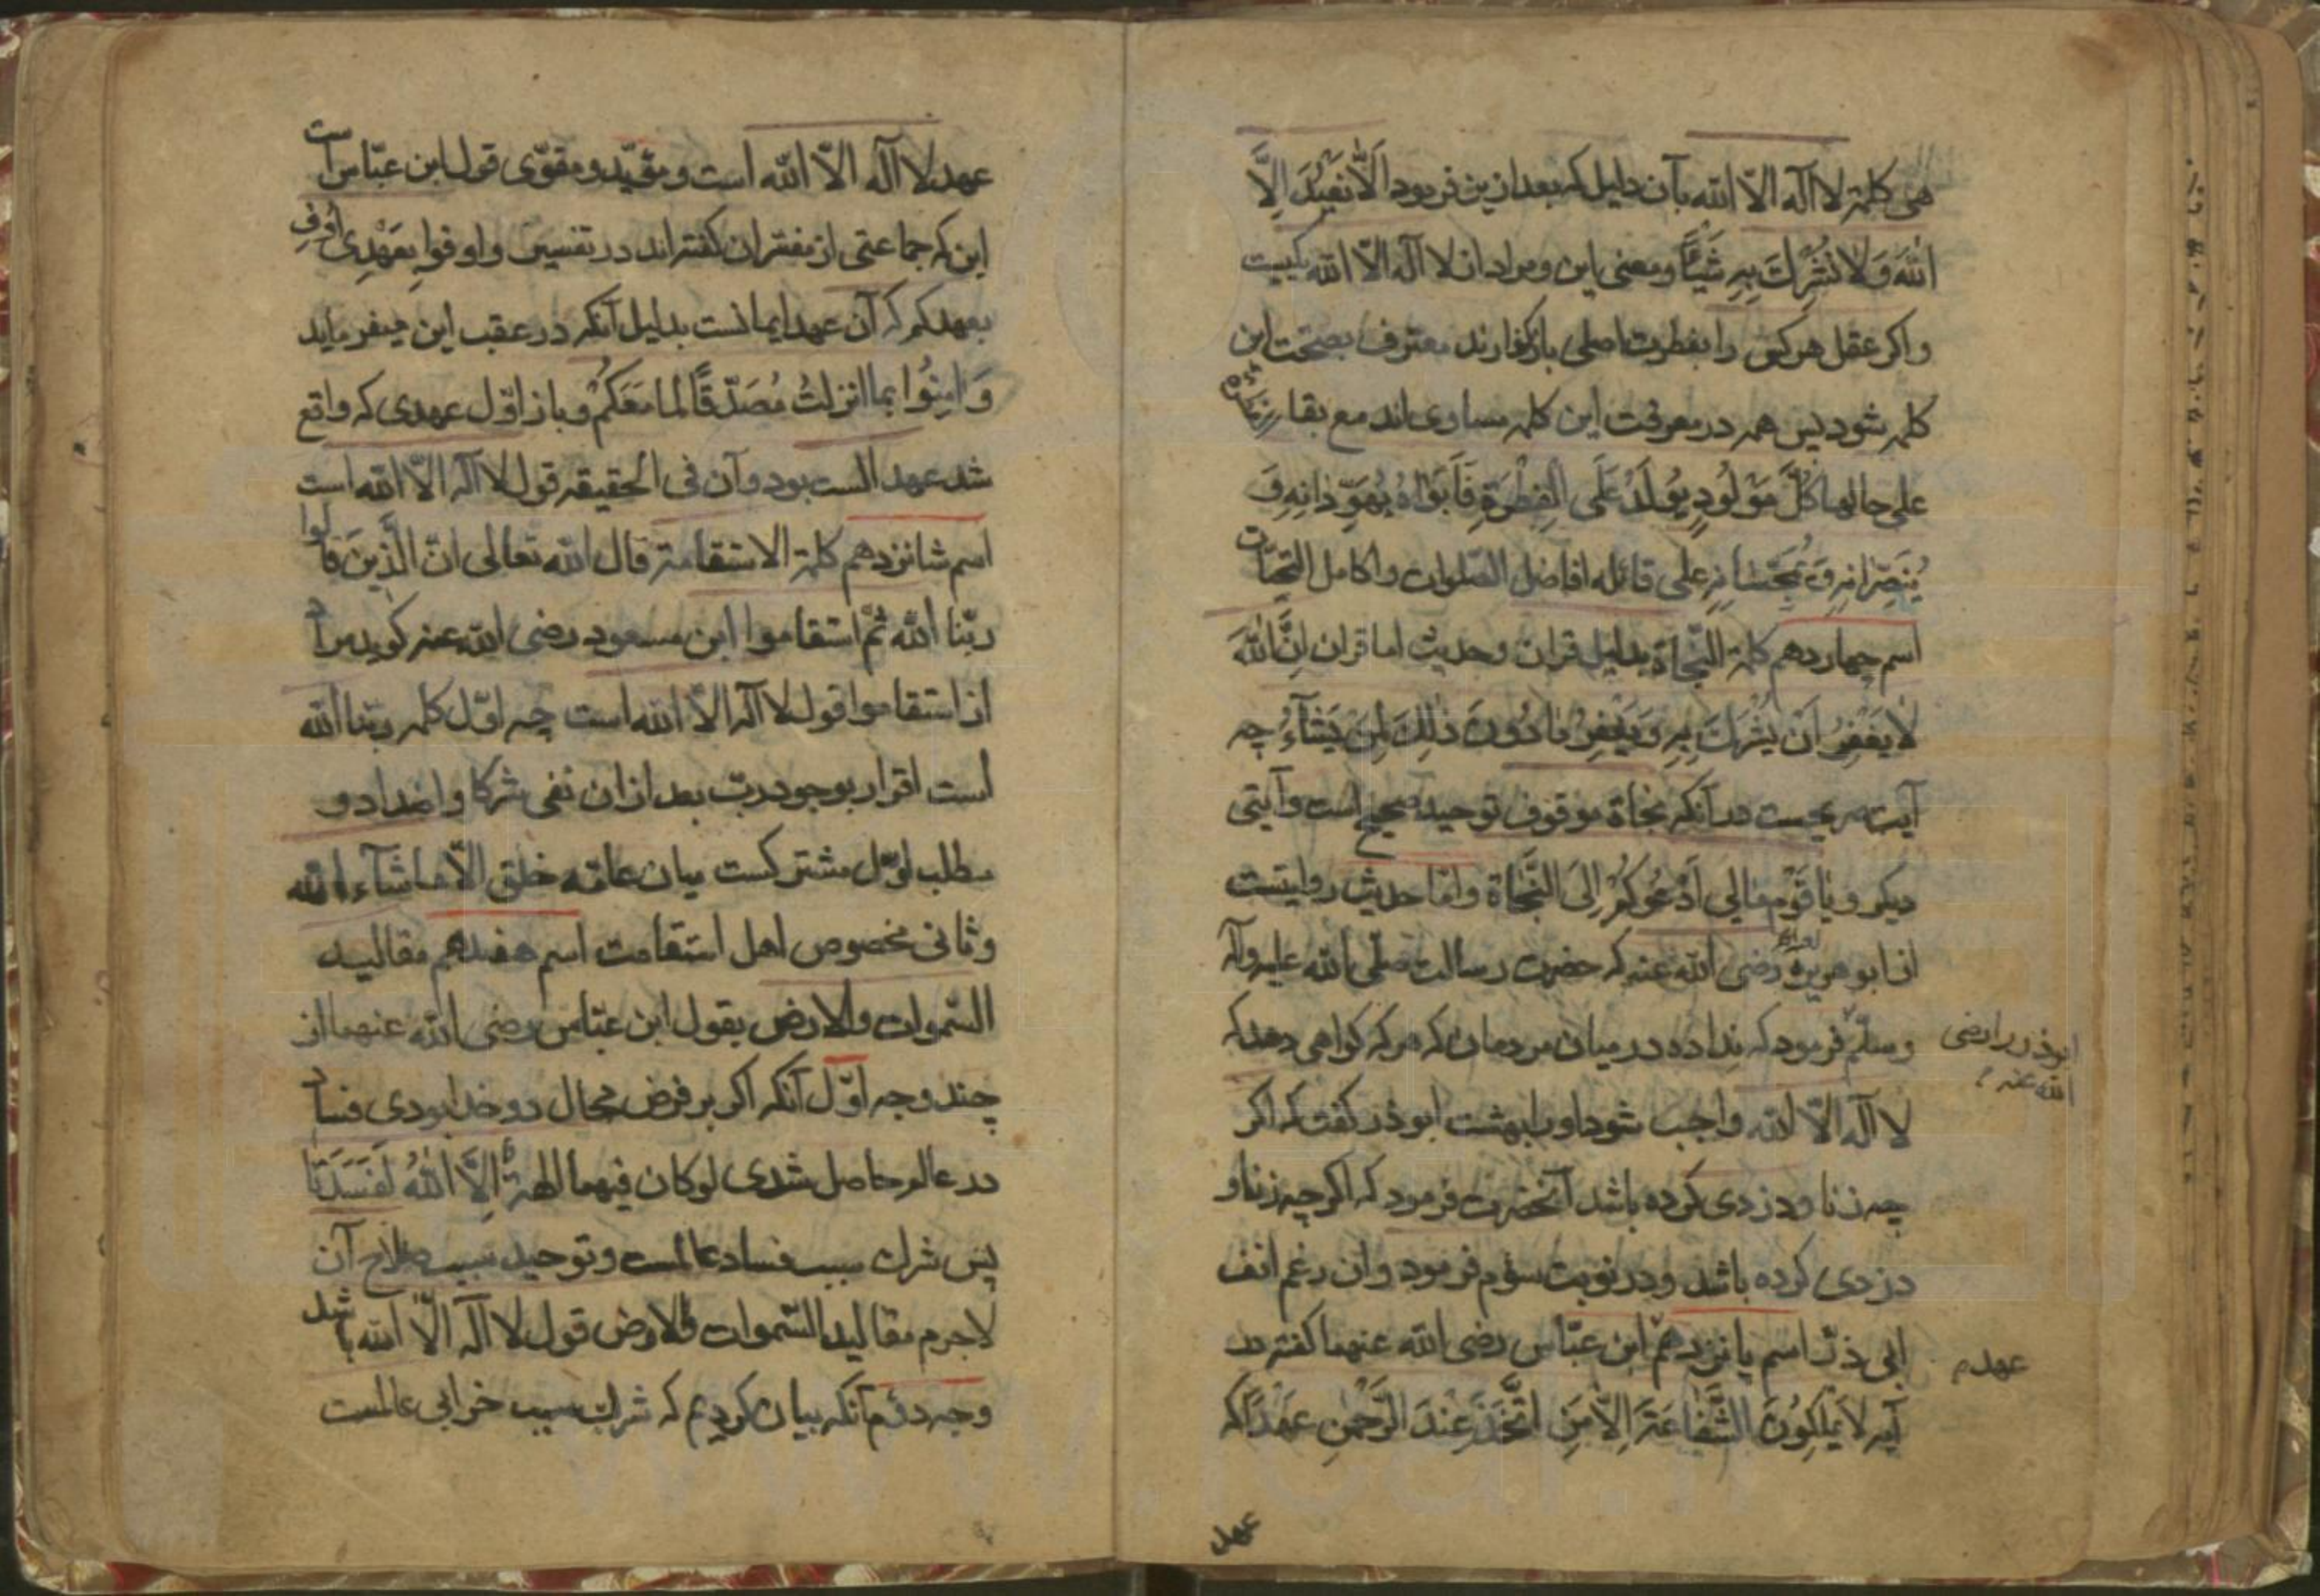 هی کلمة لا اله الا الله بآن دلیل که بعد ازین فرمود اَلَّا نَعْبُدَ اِلَّا
اللهَ وَلَا نُشْرِكَ بِهِ شَيْئًا ومعنی این ومراد از لا اله الا الله یکیست
واکر عقل هر کس را بفطرت اصلی باز کذارند معترف بصحت این
کلمه شود پس همه در معرفت این کلمه مساوی اند مع بقاء
علی حالها كُلُّ مَوْلُودٍ يُولَدُ عَلَى الْفِطْرَةِ فَاَبَوَاهُ يُهَوِّدَانِهِ وَ
يُنَصِّرَانِهِ وَ يُمَجِّسَانِهِ علی قائله افاضل الصلوات واکامل التحیّات
اسم چهاردهم کلمة النّجاة بدلیل قران وحدیث اما قران اِنَّ اللهَ
لَا يَغْفِرُ اَنْ يُشْرَكَ بِهِ وَيَغْفِرُ مَا دُونَ ذٰلِكَ لِمَنْ يَشَآءُ چه
آیت صریحست در آنکه نجاة موقوف توحید صحیح است وآیتی
دیکر و يَا قَوْمِ مَالِي اَدْعُوكُمْ اِلَى النَّجَاةِ وامّا حدیث روایتست
از ابو هریرة رضی الله عنه که حضرت رسالت صلّی الله علیه وآله
وسلّم فرمود که نداده در میان مردمان که هر که کواهی دهد که
ابوذر را رضی
الله عنه
لا اله الا الله واجب شود اورا بهشت ابوذر کفت که اکر
چه زنا ودزدی کرده باشد آنحضرت فرمود که اکر چه زنا و
دزدی کرده باشد ودر نوبت سوّم فرمود وان رغم انف
ابی ذرّ اسم پانزدهم ابن عبّاس رضی الله عنهما کفته در
عهدم
آیه لَا يَمْلِكُونَ الشَّفَاعَةَ اِلَّا مَنِ اتَّخَذَ عِنْدَ الرَّحْمٰنِ عَهْدًا که
عهد
عهد لا اله الّا الله است ومؤیّد ومقوّی قول ابن عبّاس است
این که جماعتی از مفسّران کفته اند در تفسیر واوفوا بِعَهْدِی اُوفِ
بعهدکم که آن عهد ایمانست بدلیل آنکه در عقب این میفرماید
وَآمِنُوا بما انزلتُ مُصَدّقًا لما مَعَكُمْ وباز اوّل عهدی که واقع
شد عهد الست بود وآن فی الحقیقه قول لا اله الّا الله است
اسم شانزدهم کلمة الاستقامة قال الله تعالی انّ الَّذِينَ قالوا
ربّنا الله ثُمَّ استقاموا ابن مسعود رضی الله عنه کوید مراد
از استقاموا قول لا اله الّا الله است چه اوّل کلمه ربّنا الله
است اقرار بوجود ربّ بعد ازان نفی شرکا واضداد و
مطلب اوّل مشترکست میان عامّه خلق الّا ما شآء الله
وثانی مخصوص اهل استقامت اسم هفدهم مقالید
السّموات والارض بقول ابن عبّاس رضی الله عنهما از
چند وجه اوّل آنکه اکر بر فرض محال دو خدا بودی فساد
در عالم حاصل شدی لو کان فیهما الهةٌ اِلَّا اللهُ لَفَسَدَتَا
پس شرك سبب فساد عالمست وتوحید سبب صلاح آن
لاجرم مقالید السّموات والارض قول لا اله الّا الله باشد
وجه دوّم آنکه بیان کردیم که شرك سبب خرابی عالمست